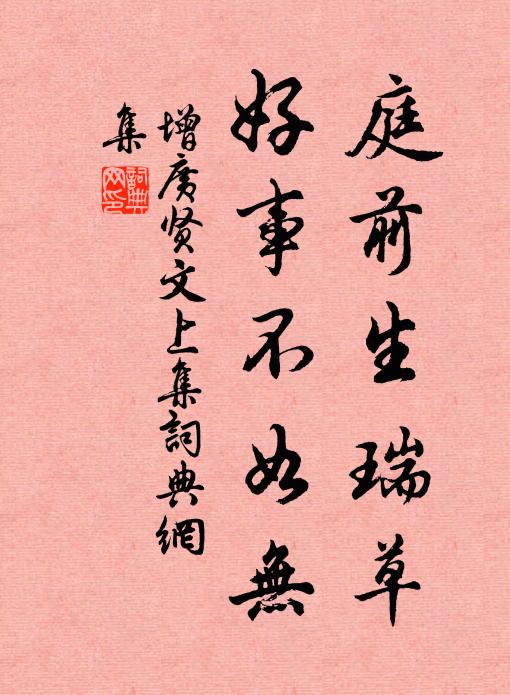 庭前生瑞草
好事不如無
增廣贤文上集詞典網
集
詞典
网印